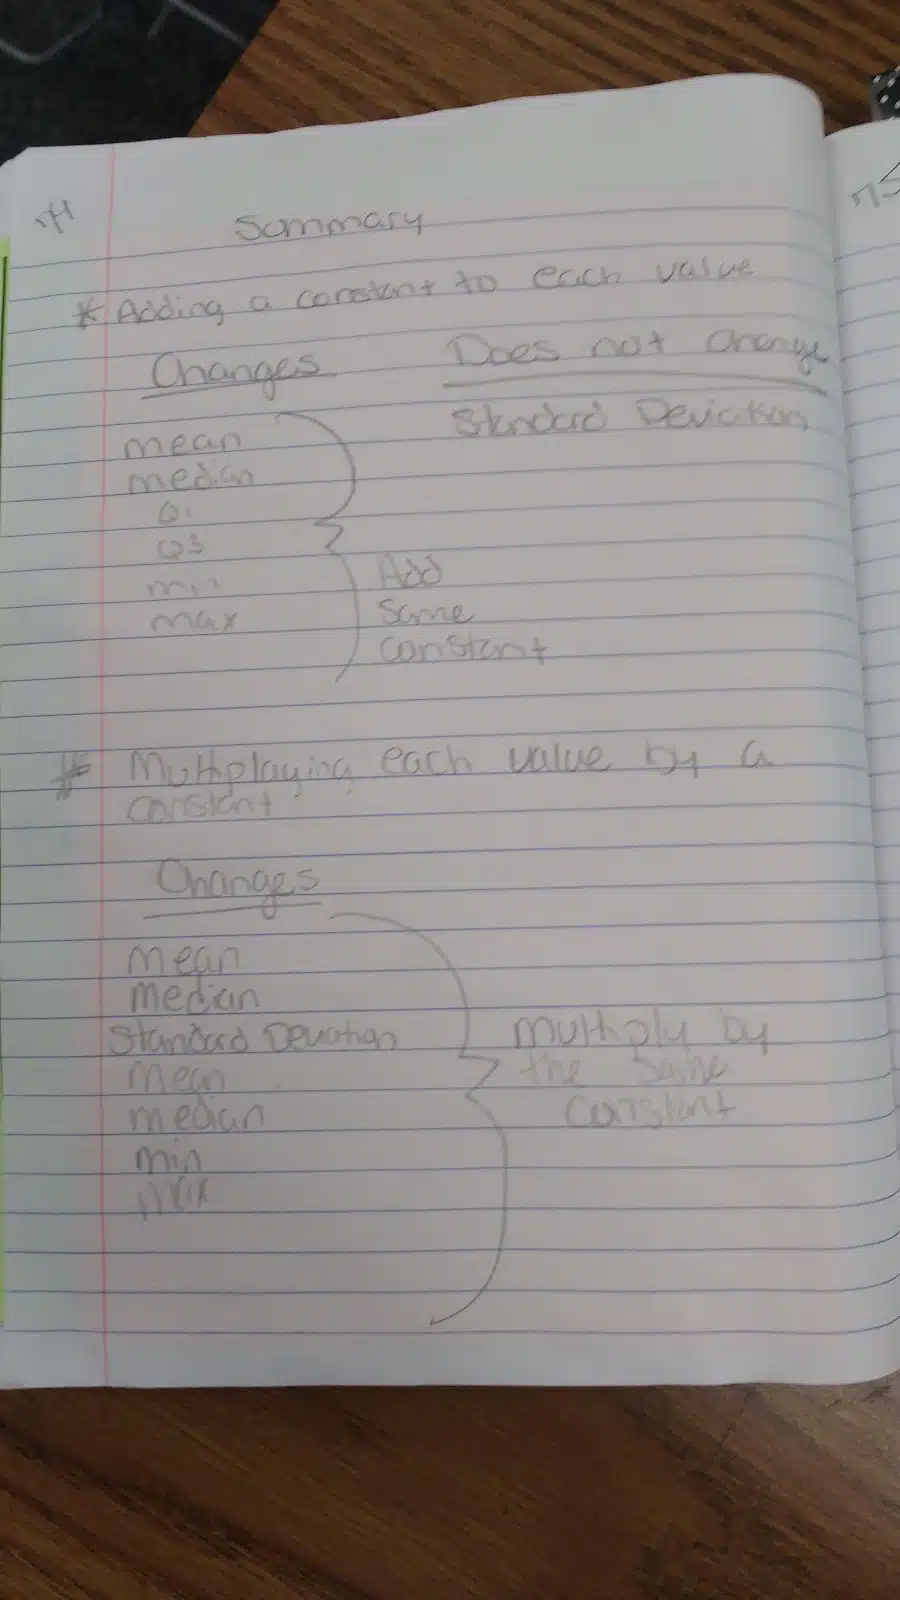 74
Summary
75
* Adding a constant to each value
Changes Does not change
mean Standard Deviation
median
Q1
Q3
min Add
max Same
constant
* Multiplaying each value by a
constant
Changes
mean
median
Standard Deviation multiply by
mean the same
median constant
min
max